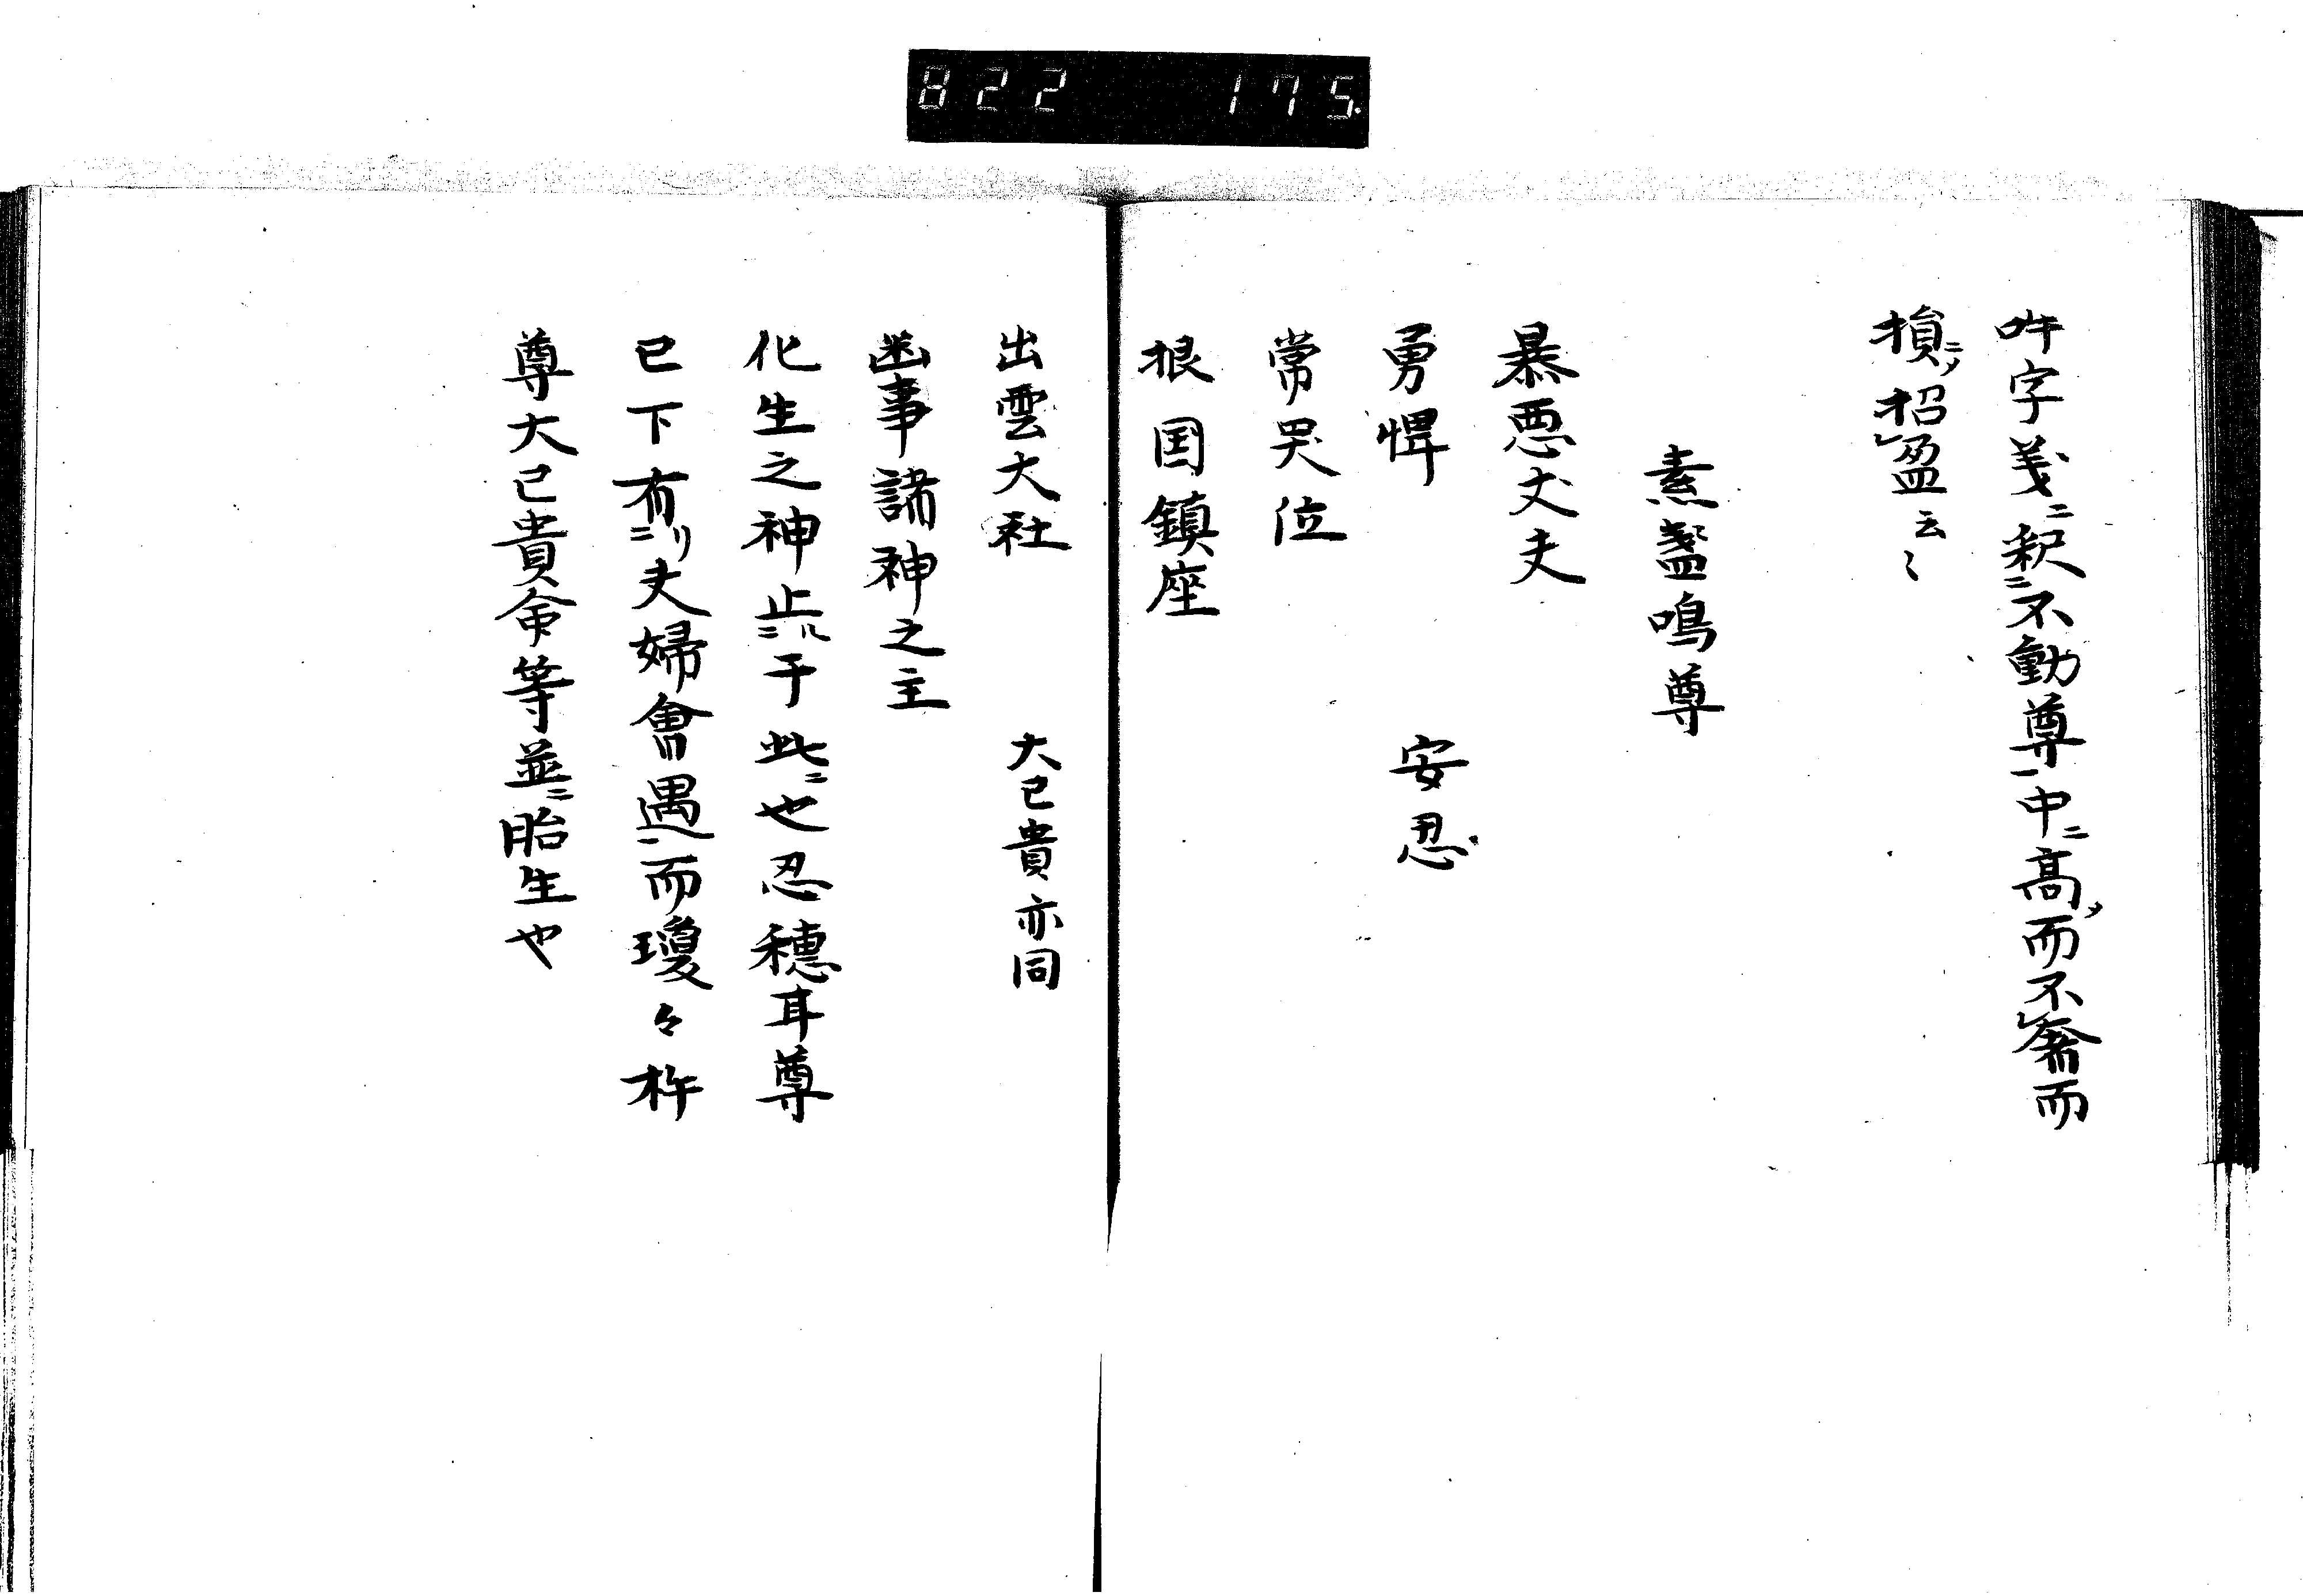 822 175
吽字義ニ釈ニ不動尊一中ニ高メ而不レ奢而
損ニメ招レ盈云〻
素盞鳴尊
暴悪丈夫
勇悍 安忍
常哭位
根国鎮座
出雲大社 大已貴亦同
幽事諸神之主
化生之神止ニル于此ニ也忍穂耳尊
已下有ニリ夫婦會遇一而瓊々杵
尊大已貴命等並ニ胎生也